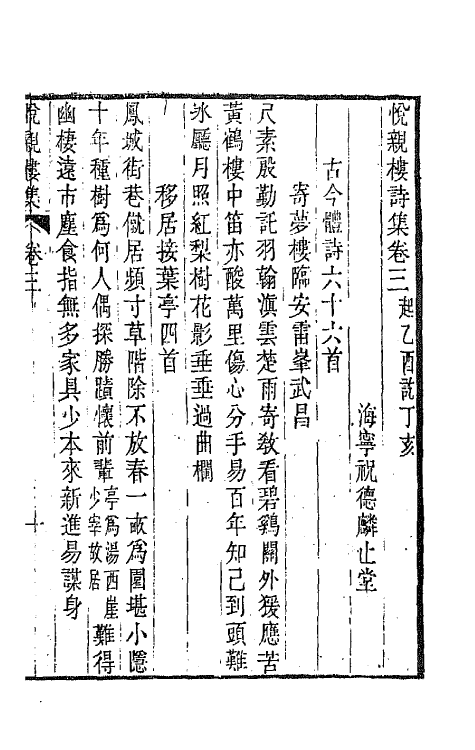 悅親樓詩集卷三 起乙酉訖丁亥
海寧祝德麟止堂
古今體詩六十六首
寄夢樓臨安雷峯武昌
尺素殷勤託羽翰滇雲楚雨寄教看碧雞關外猨應苦
黃鶴樓中笛亦酸萬里傷心分手易百年知己到頭難
冰廳月照紅梨樹花影垂垂過曲欄
移居接葉亭四首
鳳城街巷僦居頻寸草階除不放春一畝爲園堪小隱
十年種樹爲何人偶探勝蹟懷前輩亭爲湯西崖少宰故居難得
幽棲遠市塵食指無多家具少本來新進易謀身
悅親樓集 卷三 一